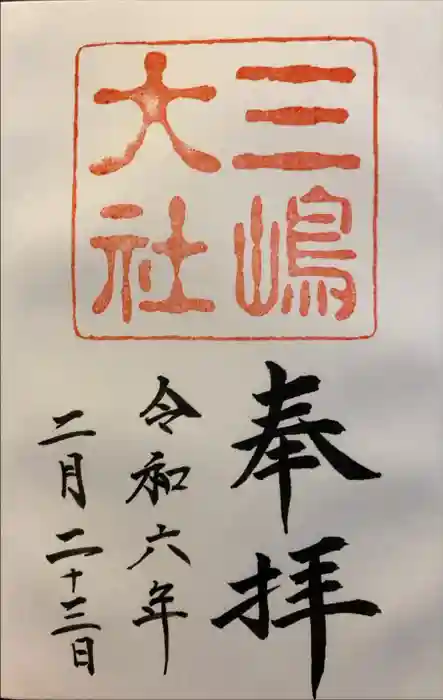 三嶋
大社
奉拝
令和六年
二月二十三日